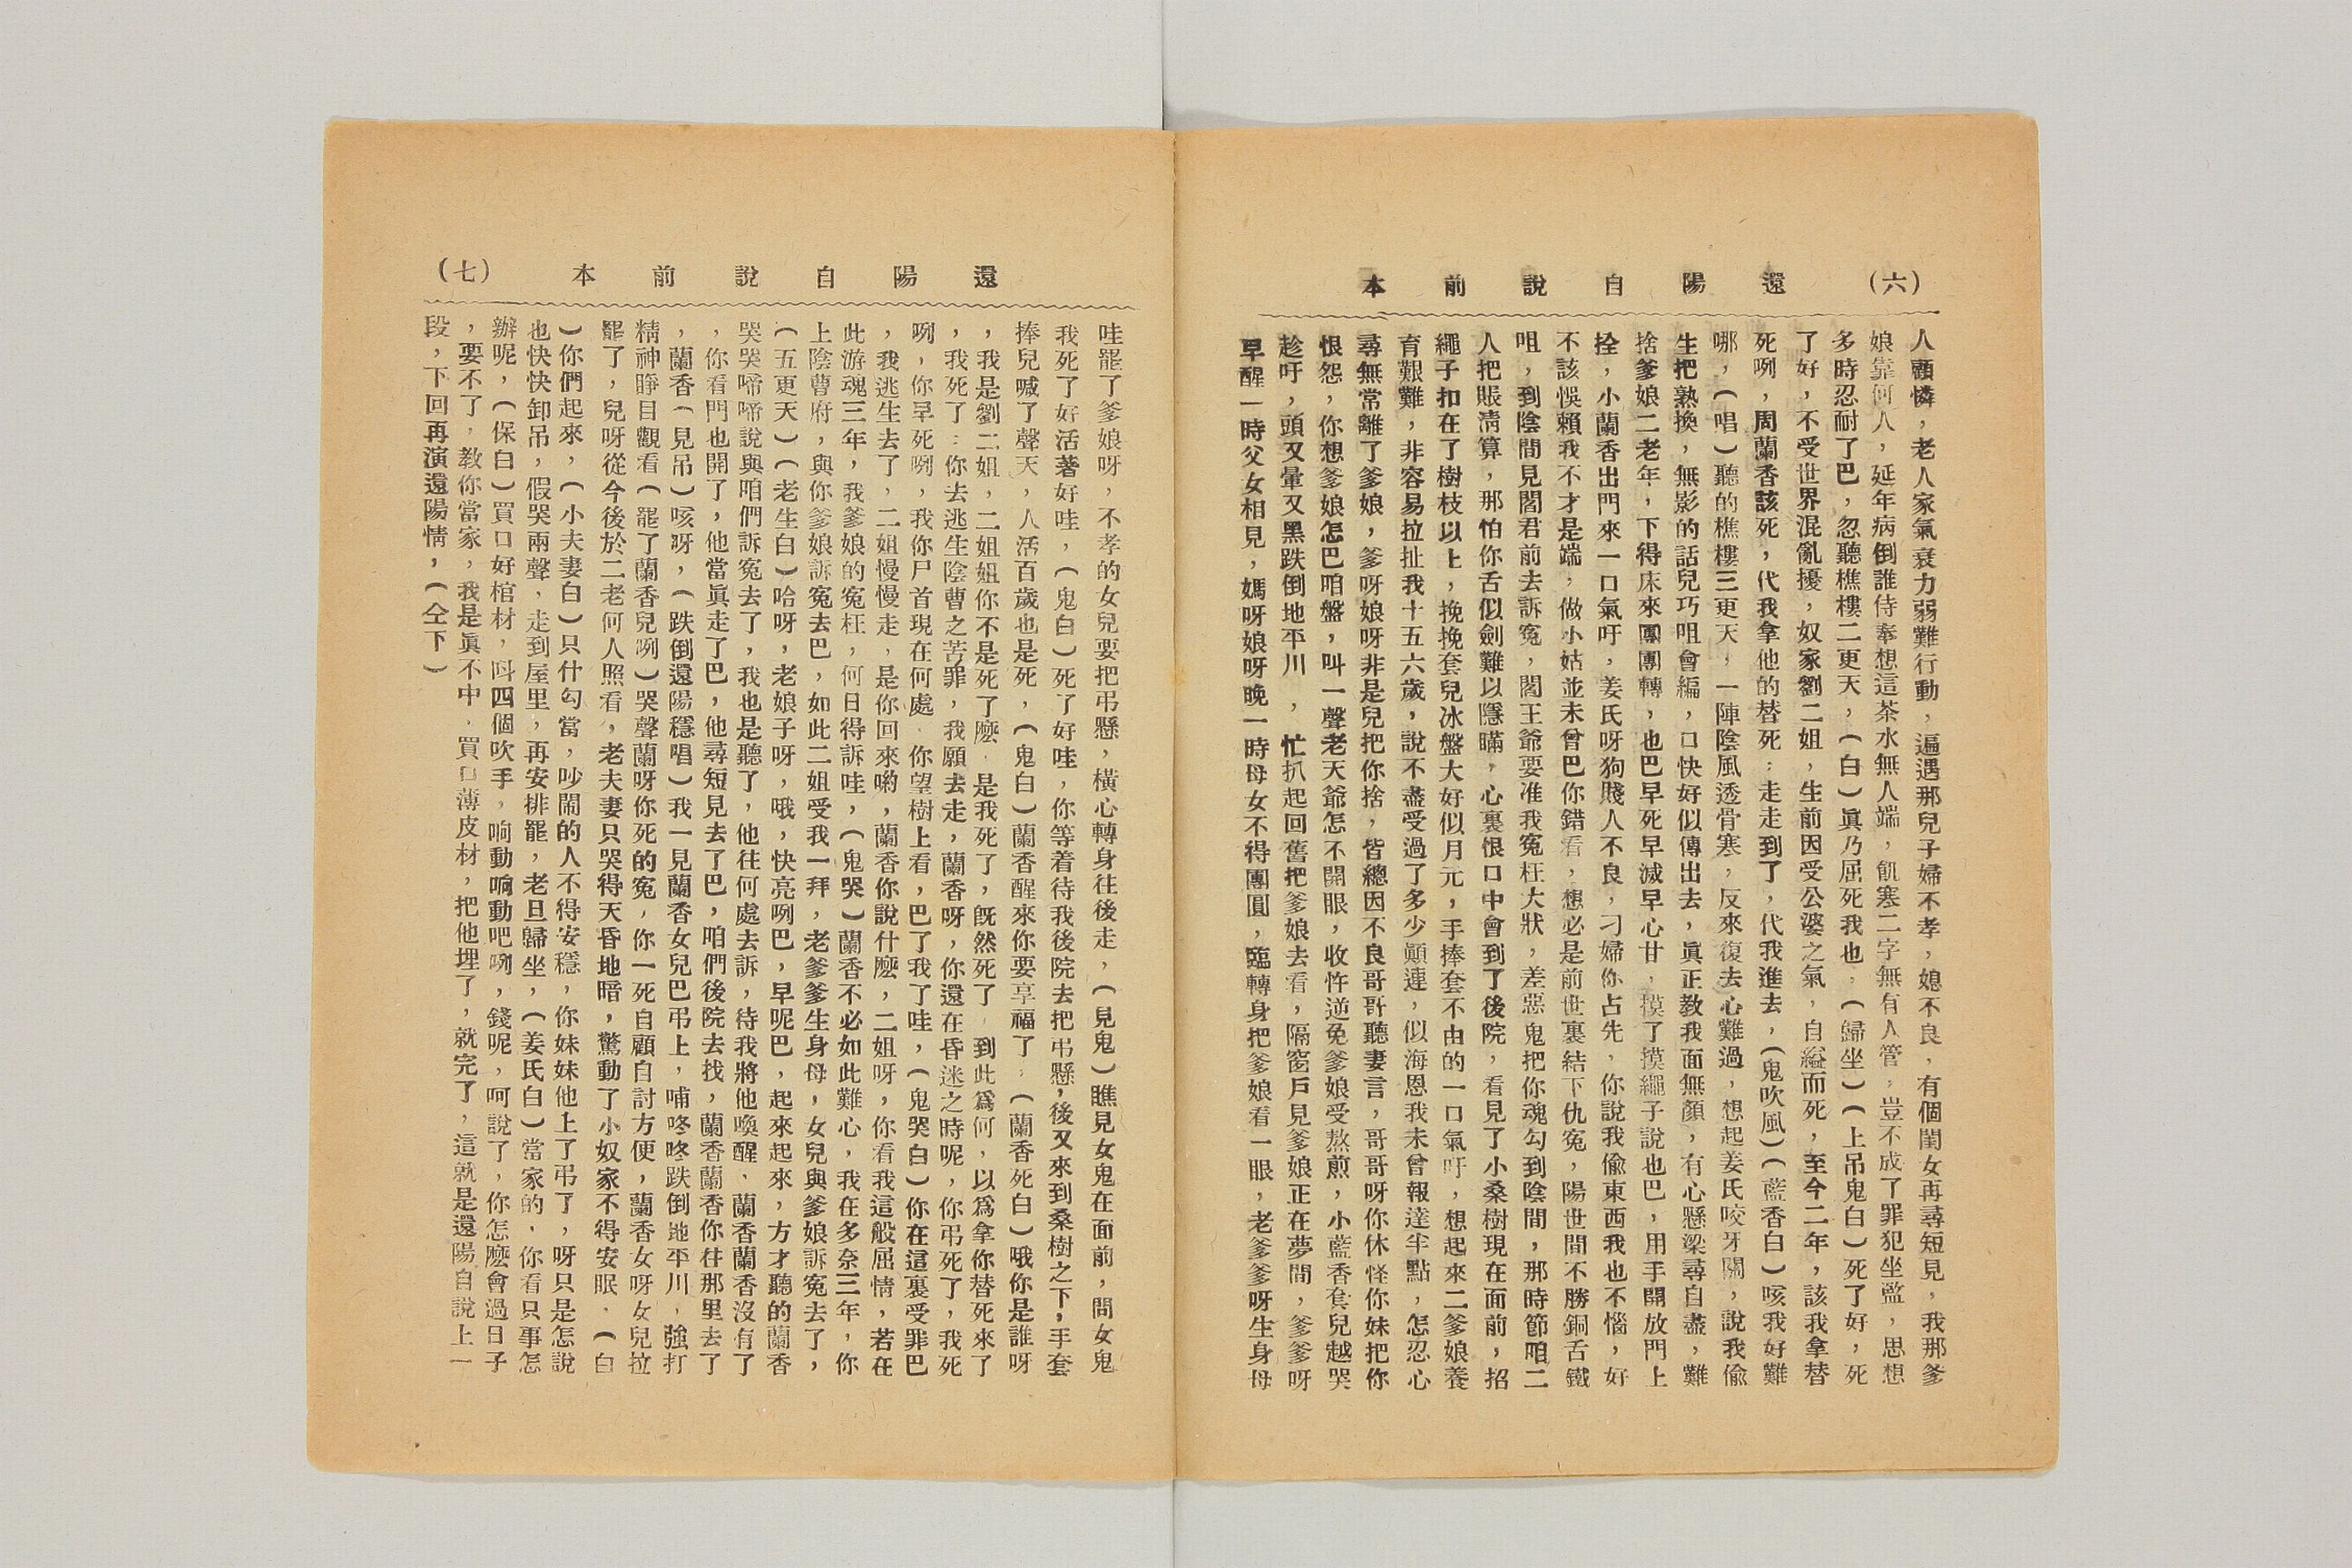 還陽自說前本 (六)
人顧憐，老人家氣衰力弱難行動，逼遇那兒子婦不孝，媳不良，有個閨女再尋短見，我那爹
娘靠何人，延年病倒誰侍奉想這茶水無人端，飢寒二字無有人管，豈不成了罪犯坐監，思想
多時忍耐了巴，忽聽樵樓二更天，(白)眞乃屈死我也，(歸坐)(上吊鬼白)死了好，死
了好，不受世界混亂擾，奴家劉二姐，生前因受公婆之氣，自縊而死，至今二年，該我拿替
死咧，周蘭香該死，代我拿他的替死：走走到了，代我進去，(鬼吹風)(藍香白)咳我好難
哪，(唱)聽的樵樓三更天，一陣陰風透骨寒，反來復去心難過，想起姜氏咬牙關，說我偷
生把熟換，無影的話兒巧咀會編，口快好似傳出去，眞正教我面無顏，有心懸梁尋自盡，難
捨爹娘二老年，下得床來團團轉，也巴早死早減早心甘，摸了摸繩子說也巴，用手開放門上
拴，小蘭香出門來一口氣吁，姜氏呀狗賤人不良，刁婦你占先，你說我偷東西我也不惱，好
不該悞賴我不才是端，做小姑並未曾巴你錯看，想必是前世裏結下仇寃，陽世間不勝銅舌鐵
咀，到陰間見閻君前去訴寃，閻王爺要准我寃枉大狀，差惡鬼把你魂勾到陰間，那時節咱二
人把賬淸算，那怕你舌似劍難以隱瞞，心裏恨口中會到了後院，看見了小桑樹現在面前，招
繩子扣在了樹枝以上，挽挽套兒冰盤大好似月元，手捧套不由的一口氣吁，想起來二爹娘養
育艱難，非容易拉扯我十五六歲，說不盡受過了多少顚連，似海恩我未曾報達半點，怎忍心
尋無常離了爹娘，爹呀娘呀非是兒把你捨，皆總因不良哥哥聽妻言，哥哥呀你休怪你妹把你
恨怨，你想爹娘怎巴咱盤，叫一聲老天爺怎不開眼，收忤逆免爹娘受熬煎，小藍香套兒越哭
趁吁，頭又暈又黑跌倒地平川，忙扒起回舊把爹娘去看，隔窗戶見爹娘正在夢間，爹爹呀
早醒一時父女相見，媽呀娘呀晚一時母女不得團圓，臨轉身把爹娘看一眼，老爹爹呀生身母
還陽自說前本 (七)
哇罷了爹娘呀，不孝的女兒要把吊懸，橫心轉身往後走，(見鬼)瞧見女鬼在面前，問女鬼
我死了好活著好哇，(鬼白)死了好哇，你等着待我後院去把吊懸，後又來到桑樹之下，手套
捧兒喊了聲天，人活百歲也是死，(鬼白)蘭香醒來你要享福了，(蘭香死白)哦你是誰呀
，我是劉二姐，二姐姐你不是死了麽，是我死了，旣然死了，到此爲何，以爲拿你替死來了
，我死了：你去逃生陰曹之苦罪，我願去走，蘭香呀，你還在昏迷之時呢，你吊死了，我死
咧，你早死咧，我你尸首現在何處，你望樹上看，巴了我了哇，(鬼哭白)你在這裏受罪巴
，我逃生去了，二姐慢慢走，是你回來喲，蘭香你說什麽，二姐呀，你看我這般屈情，若在
此游魂三年，我爹娘的寃枉，何日得訴哇，(鬼哭)蘭香不必如此難心，我在多奈三年，你
上陰曹府，與你爹娘訴寃去巴，如此二姐受我一拜，老爹爹生身母，女兒與爹娘訴寃去了，
(五更天)(老生白)哈呀，老娘子呀，哦，快亮咧巴，早呢巴，起來起來，方才聽的蘭香
哭哭啼啼說與咱們訴寃去了，我也是聽了，他往何處去訴，待我將他喚醒，蘭香蘭香沒有了
，你看門也開了，他當眞走了巴，他尋短見去了巴，咱們後院去找，蘭香蘭香你往那里去了
，蘭香(見吊)咳呀，(跌倒還陽穩唱)我一見蘭香女兒巴吊上，哺咚咚跌倒地平川，強打
精神睜目觀看(罷了蘭香兒咧)哭聲蘭呀你死的寃，你一死自顧自討方便，蘭香女呀女兒拉
罷了，兒呀從今後於二老何人照看，老夫妻只哭得天昏地暗，驚動了小奴家不得安眠，(白
)你們起來，(小夫妻白)只什勾當，吵鬧的人不得安穩，你妹妹他上了吊了，呀只是怎說
也快快卸吊，假哭兩聲，走到屋里，再安排罷，老旦歸坐，(姜氏白)當家的，你看只事怎
辦呢，(保白)買口好棺材，呌四個吹手，响動响動吧咧，錢呢，呵說了，你怎麽會過日子
，要不了，教你當家，我是眞不中，買口薄皮材，把他埋了，就完了，這就是還陽自說上一
段，下回再演還陽情，(仝下)